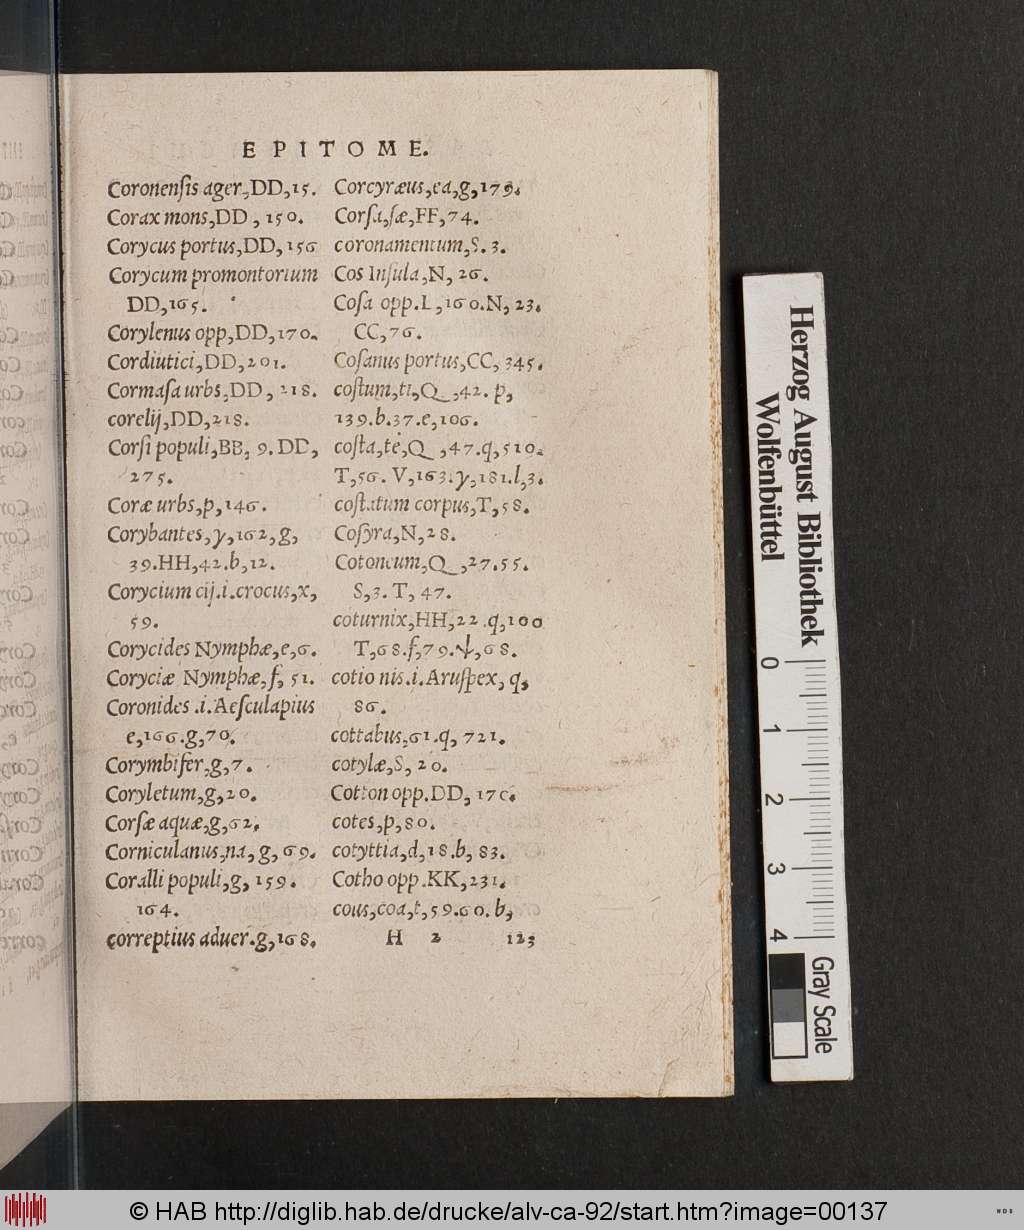 EPITOME.
Coronensis ager, DD, 15.
Corax mons, DD, 150.
Corycus portus, DD, 156
Corycum promontorium
DD, 165.
Corylenus opp, DD, 170.
Cordiutici, DD, 201.
Cormasa urbs, DD, 218.
corelij, DD, 218.
Corsi populi, BB, 9. DD,
275.
Coræ urbs, p, 146.
Corybantes, γ, 162, g,
39. HH, 42. b, 12.
Corycium cij. i. crocus, x,
59.
Corycides Nymphæ, e, 6.
Coryciæ Nymphæ, f, 51.
Coronides .i. Aesculapius
e, 166. g, 70.
Corymbifer, g, 7.
Coryletum, g, 20.
Corsæ aquæ, g, 62,
Corniculanus, na, g, 69.
Coralli populi, g, 159.
164.
correptius aduer. g, 168.
Corcyræus, ea, g, 179.
Corsa, sæ, FF, 74.
coronamentum, S. 3.
Cos Insula, N, 26.
Cosa opp. L, 160. N, 23.
CC, 76.
Cosanus portus, CC, 345.
costum, ti, Q, 42. p,
139. b. 37. e, 106.
costa, te, Q, 47. q, 510.
T, 56. V, 163. γ, 181. l, 3.
costatum corpus, T, 58.
Cosyra, N, 28.
Cotoneum, Q, 27. 55.
S, 3. T, 47.
coturnix, HH, 22. q, 100
T, 68. f, 79. ψ, 68.
cotio nis. i. Aruspex, q,
86.
cottabus, 61. q, 721.
cotylæ, S, 20.
Cotton opp. DD, 170.
cotes, p, 80.
cotyttia, d, 18. b, 83.
Cotho opp. KK, 231.
cous, coa, t, 59. 60. b,
H 2 123
Herzog August Bibliothek
Wolfenbüttel
0 1 2 3 4
Gray Scale
© HAB http://diglib.hab.de/drucke/alv-ca-92/start.htm?image=00137